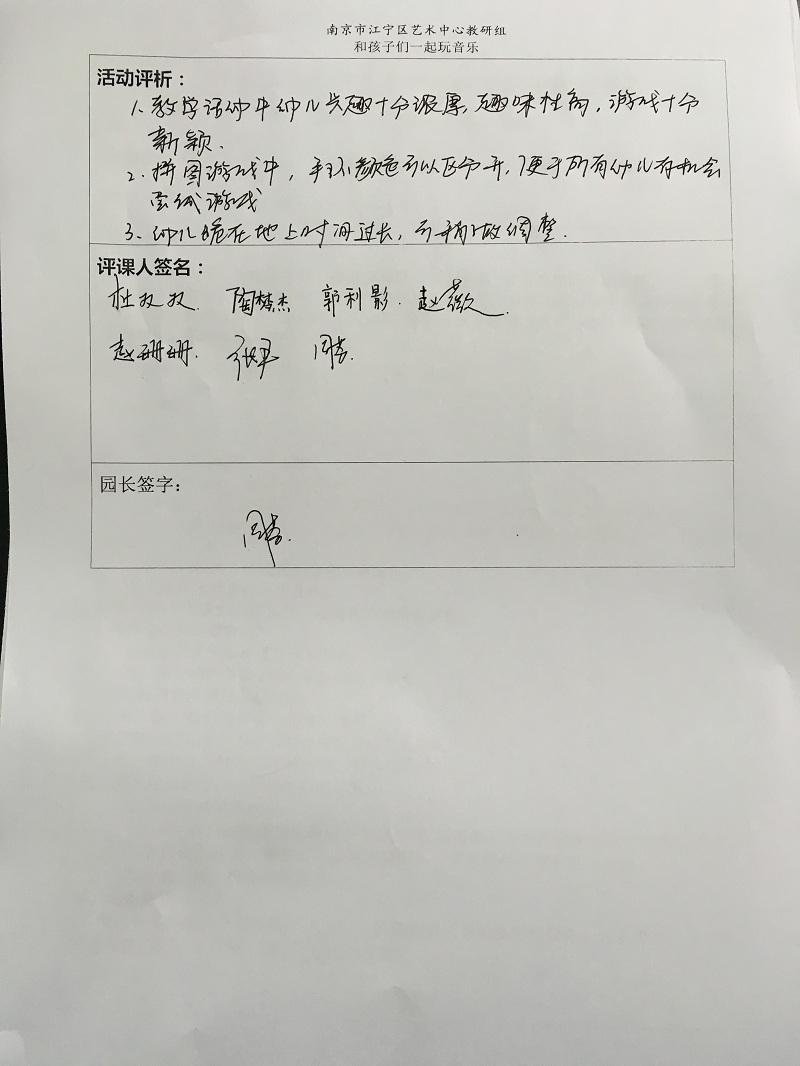 南京市江宁区艺术中心教研组
和孩子们一起玩音乐
活动评析：
1、教学活动中幼儿兴趣十分浓厚，趣味性高，游戏十分
新颖.
2、拼图游戏中，手环颜色可以区分开，便于所有幼儿有机会
尝试游戏
3、幼儿跪在地上时间过长，可稍做调整.
评课人签名：
杜双双. 陶梦杰 郭利影. 赵薇.
赵珊珊.
园长签字：